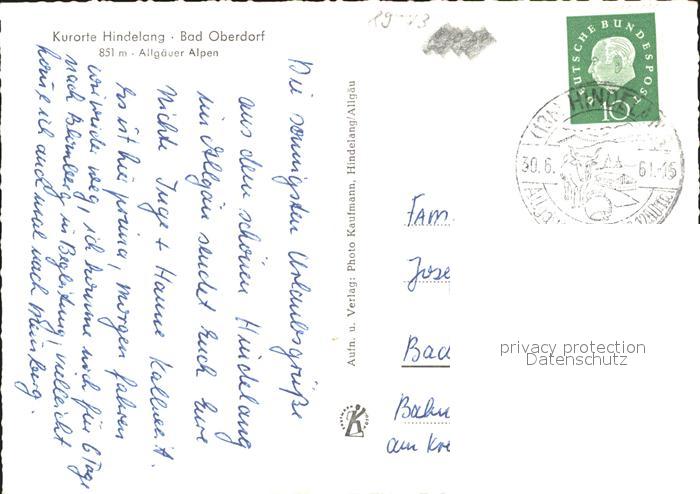 Kurorte Hindelang · Bad Oberdorf
851 m · Allgäuer Alpen
Die sonnigsten Urlaubsgrüße
aus dem schönen Hindelang
im Allgäu sendet Euch Eure
Nichte Inge + Hanne
Es ist hier prima, morgen fahren
wir wieder weg, ich komme noch für 6 Tage
nach in Begleitung, vielleicht
komme ich auch mal nach
Aufn. u. Verlag: Photo Kaufmann, Hindelang/Allgäu
DEUTSCHE BUNDESPOST
10
(13b) HINDELANG
30.6. 61-15
Fam.
Jose
Bad
Bahn
am Kre
privacy protection
Datenschutz